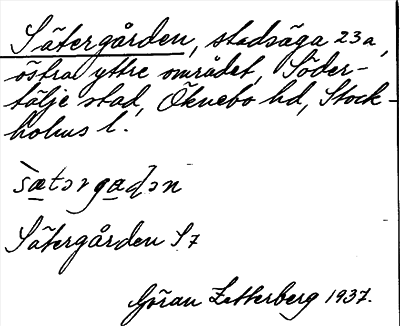 Sätergården, stadsäga 23a,
östra yttre området, Söder-
tälje stad, Öknebo hd, Stock-
holms l.
Sätergården S7
Göran Zetterberg 1937.